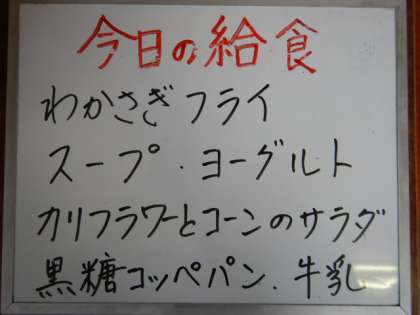 今日の給食
わかさぎフライ
スープ・ヨーグルト
カリフラワーとコーンのサラダ
黒糖コッペパン.牛乳